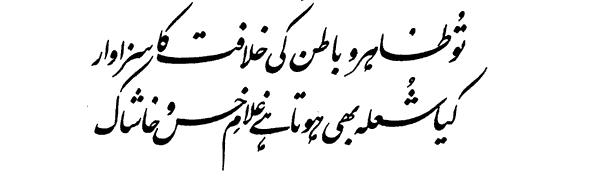 تُو ظاہر و باطن کی خلافت کا سزاوار
کیا شُعلہ بھی ہوتا ہے غلامِ خس و خاشاک